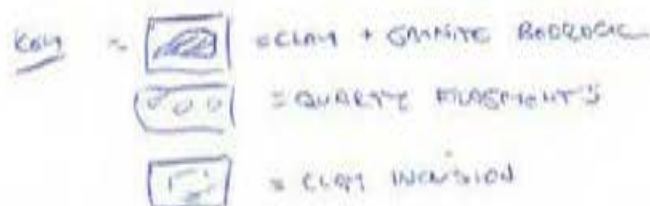 KEY =
= CLAY + GRANITE BEDROCK
= QUARTZ FRAGMENTS
= CLAY INCLUSION